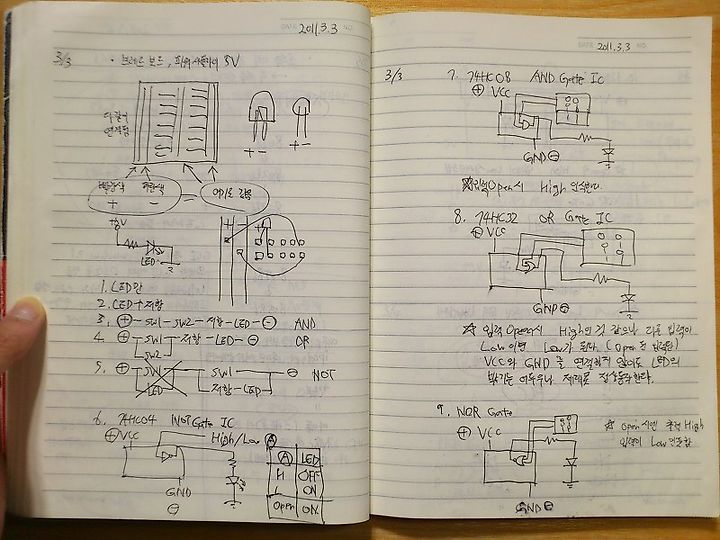 2011.3.3
3/3
· 브레드 보드, 파워서플라이 5V
다같이
연결됨
빨간색
파란색
+ -
=
여기도 같음
+ -
+ -
+5V
LED
+ -
1. LED만
2. LED+저항
3. ⊕-SW1-SW2-저항-LED-⊖ AND
4. ⊕ SW1 저항-LED-⊖ OR
SW2
5. ⊕ SW1 ⊖ NOT
LED 저항-LED
6. 74HC04 NOT Gate IC
⊕VCC High/Low Ⓐ
GND
⊖
Ⓐ LED
H OFF
L ON
Open ON
2011.3.3
3/3
7. 74HC08 AND Gate IC
⊕ VCC
GND ⊖
☆입력Open시 High 인식한다.
8. 74HC32 OR Gate IC
⊕ VCC
GND ⊖
☆ 입력 Open시 High인것 같으나 다른 입력이
Low이면 Low가 된다. (Open은 입력됨)
VCC와 GND를 연결하지 않아도 LED의
밝기는 어두우나 제대로 정상동작한다.
9. NOR Gate
⊕ VCC
GND ⊖
☆ Open 시엔 High
입력이 Low 인듯함